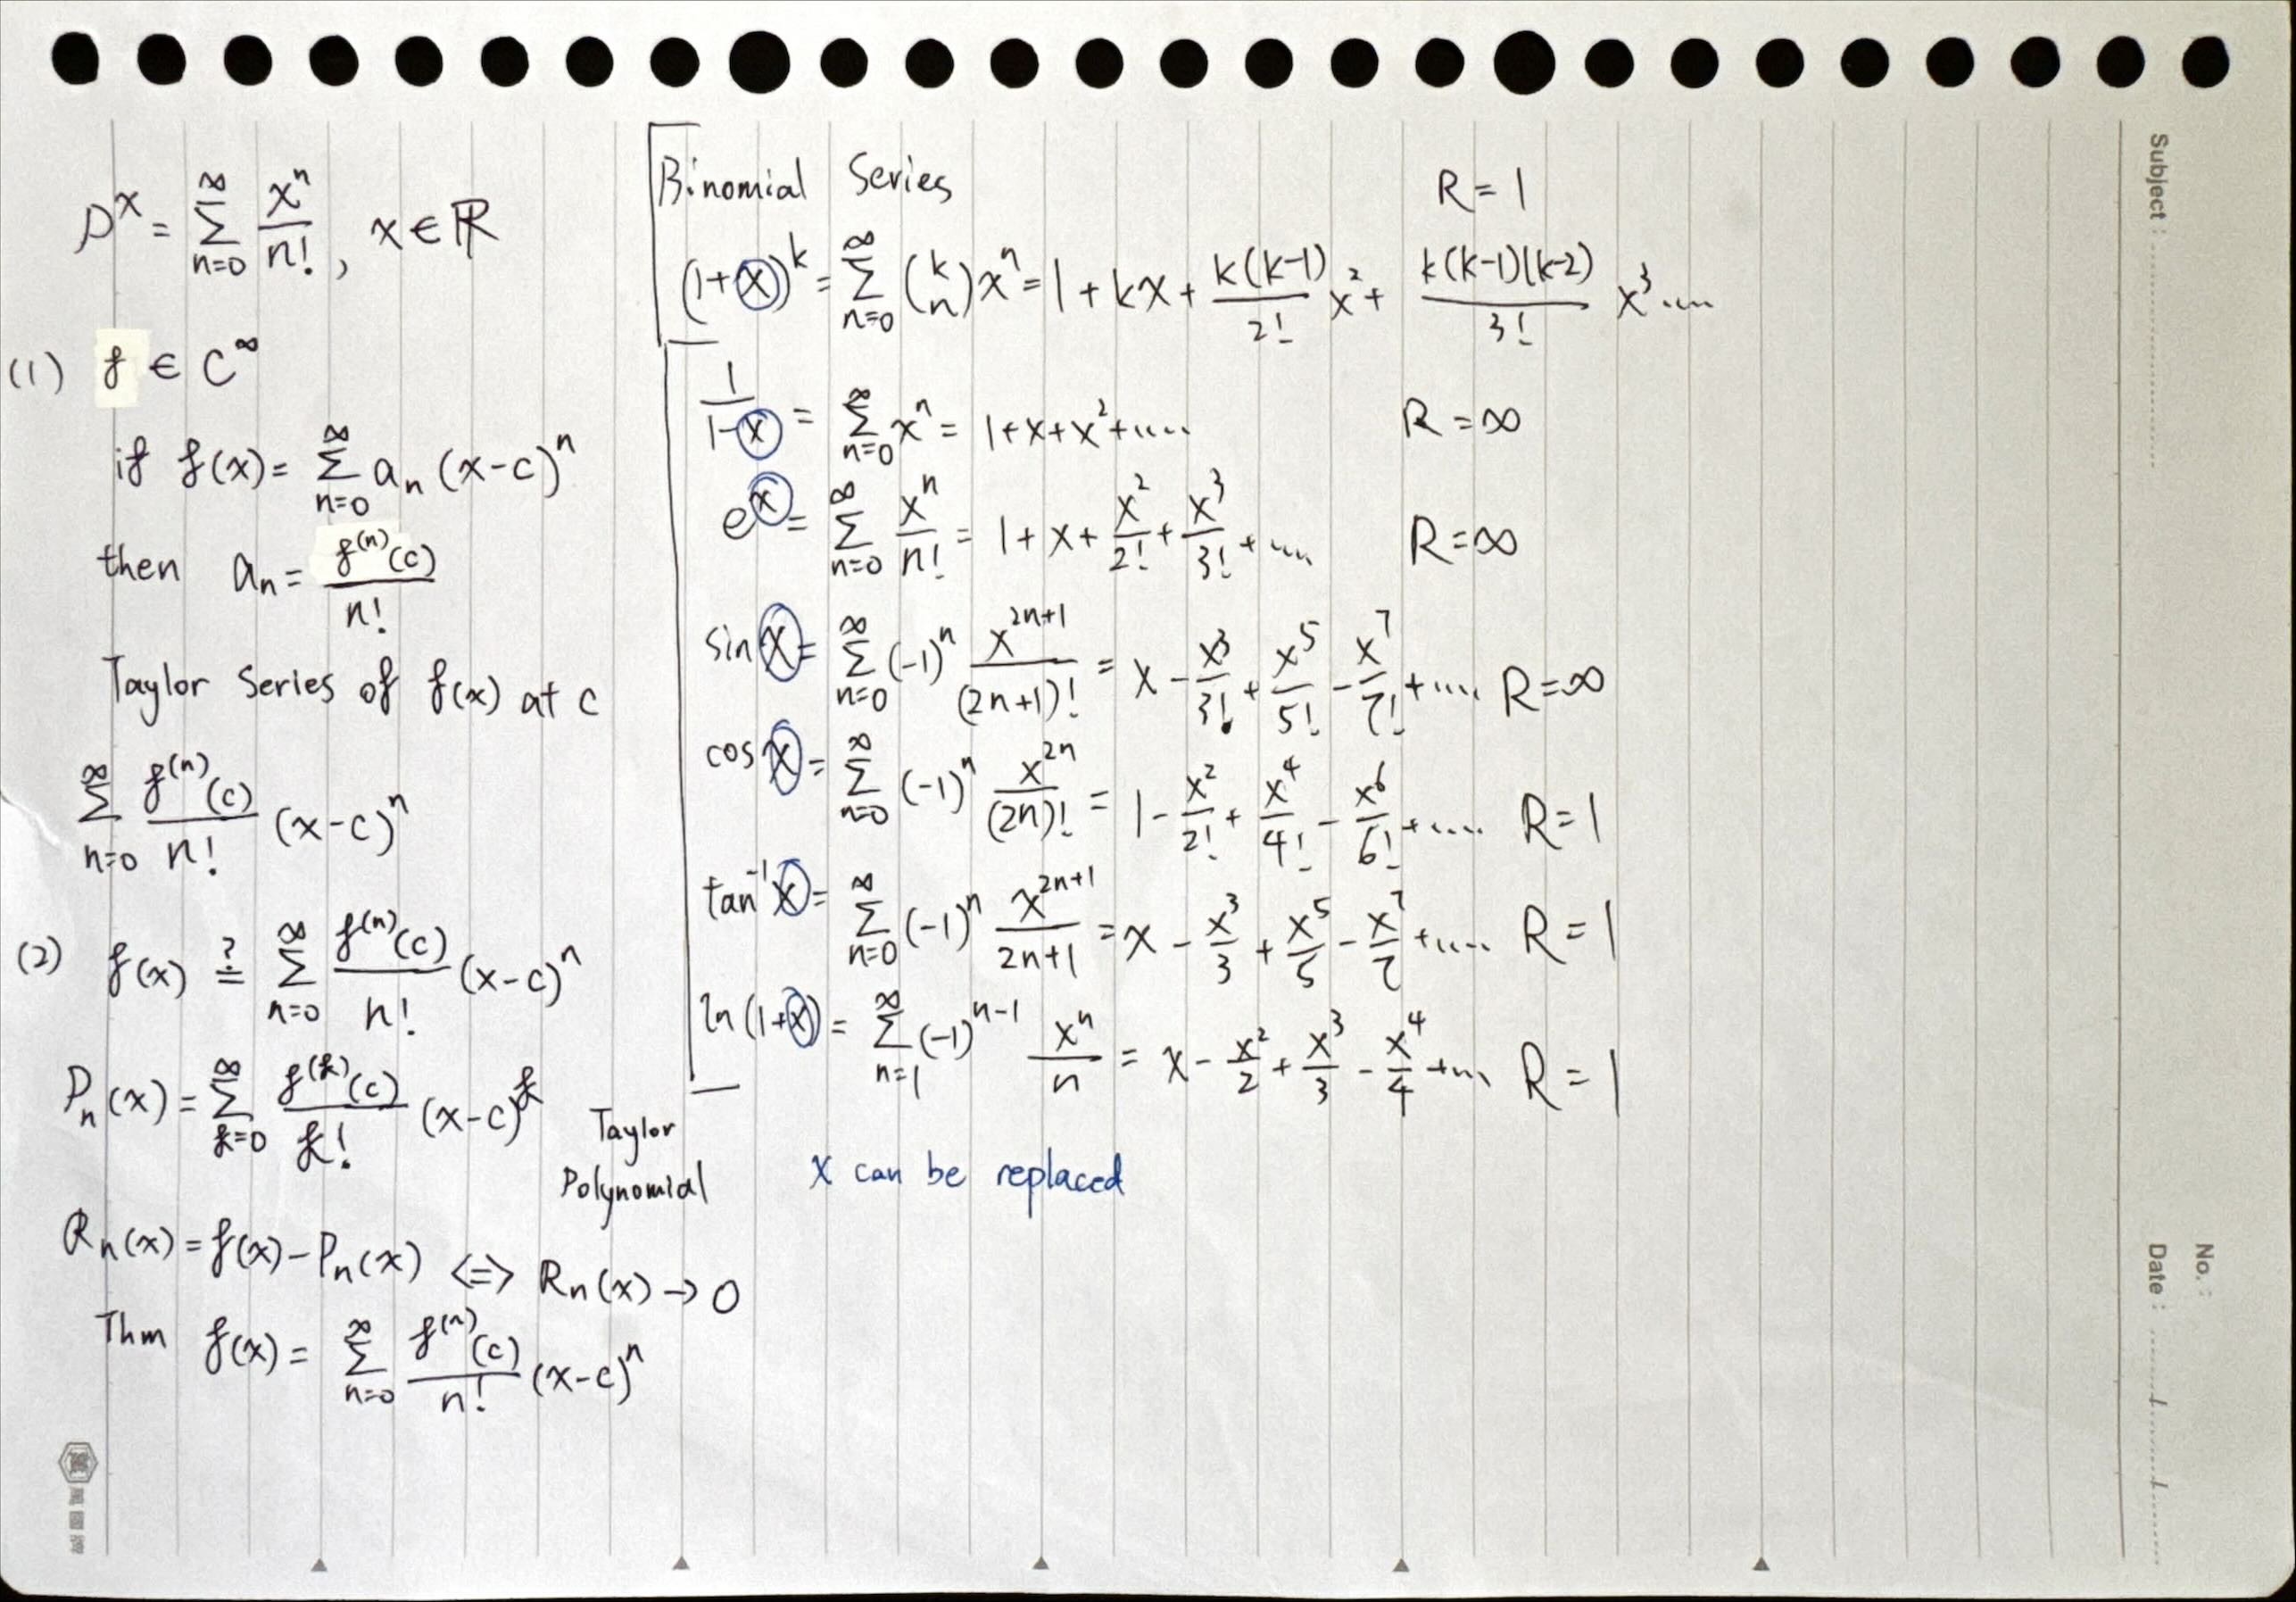 p^x = ∑_{n=0}^{∞} x^n/n! , x ∈ ℝ
(1) f ∈ C^∞
if f(x) = ∑_{n=0}^{∞} a_n (x-c)^n
then a_n = f^{(n)}(c)/n!
Taylor Series of f(x) at c
∑_{n=0}^{∞} f^{(n)}(c)/n! (x-c)^n
(2) f(x) ≟ ∑_{n=0}^{∞} f^{(n)}(c)/n! (x-c)^n
P_n(x) = ∑_{k=0}^{∞} f^{(k)}(c)/k! (x-c)^k
Taylor
Polynomial
R_n(x) = f(x) - P_n(x) <=> R_n(x) → 0
Thm f(x) = ∑_{n=0}^{∞} f^{(n)}(c)/n! (x-c)^n
Binomial Series R = 1
(1+x)^k = ∑_{n=0}^{∞} (k n) x^n = 1 + kx + k(k-1)/2! x^2 + k(k-1)(k-2)/3! x^3 ....
1/(1-x) = ∑_{n=0}^{∞} x^n = 1+x+x^2+.... R = ∞
e^x = ∑_{n=0}^{∞} x^n/n! = 1 + x + x^2/2! + x^3/3! + .... R = ∞
sin x = ∑_{n=0}^{∞} (-1)^n x^{2n+1}/(2n+1)! = x - x^3/3! + x^5/5! - x^7/7! + .... R = ∞
cos x = ∑_{n=0}^{∞} (-1)^n x^{2n}/(2n)! = 1 - x^2/2! + x^4/4! - x^6/6! + .... R = 1
tan^{-1} x = ∑_{n=0}^{∞} (-1)^n x^{2n+1}/2n+1 = x - x^3/3 + x^5/5 - x^7/7 + .... R = 1
ln(1+x) = ∑_{n=1}^{∞} (-1)^{n-1} x^n/n = x - x^2/2 + x^3/3 - x^4/4 + ... R = 1
x can be replaced
Subject :
No. :
Date : / /